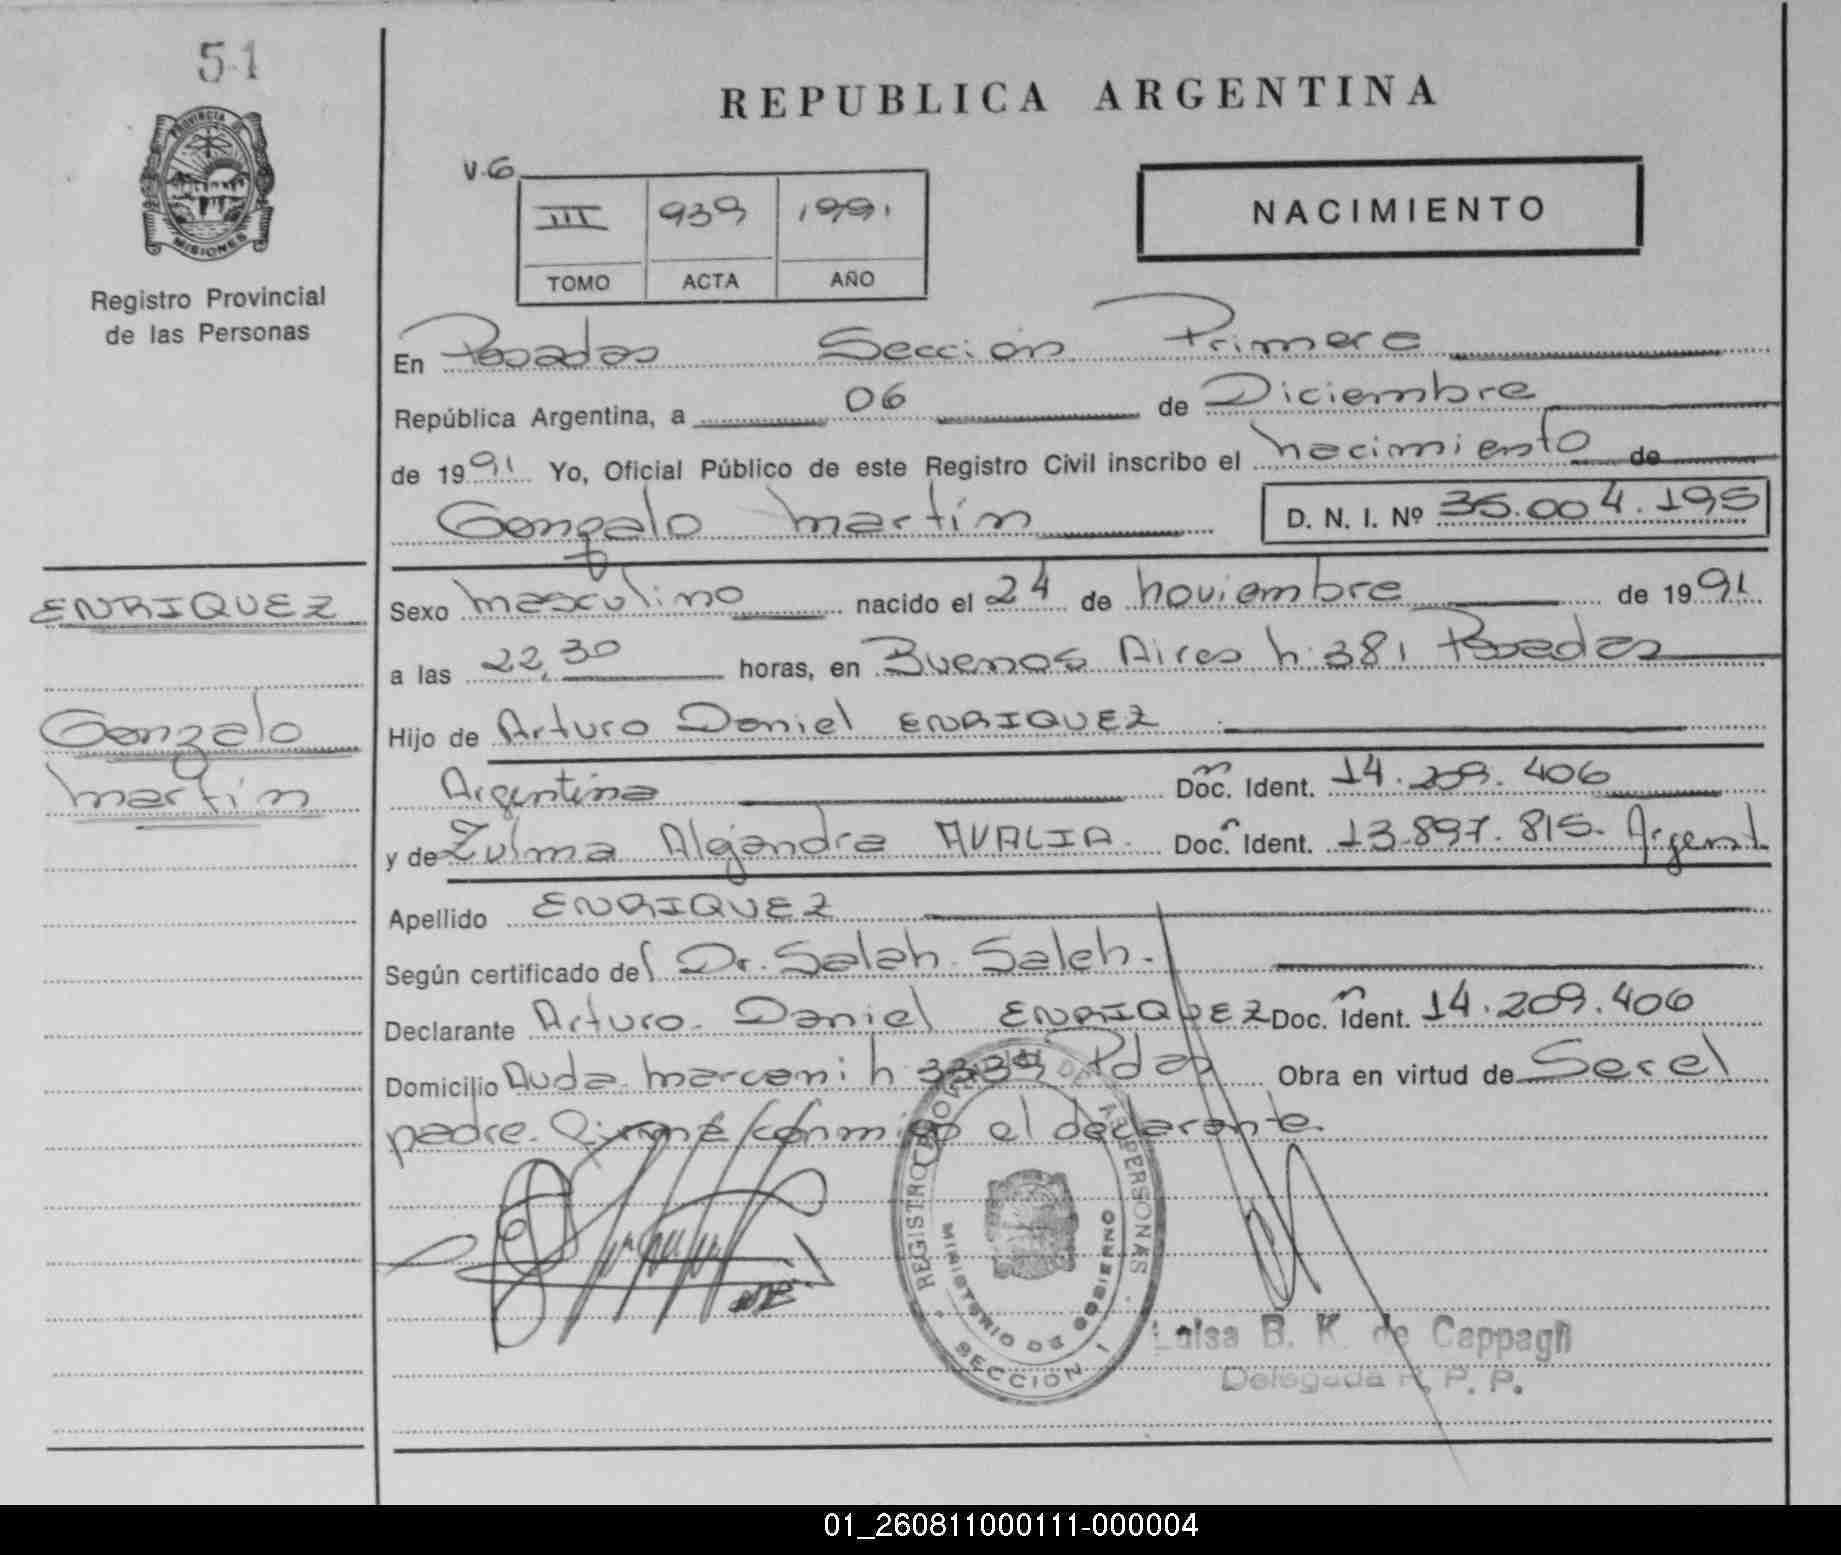 51
REPUBLICA ARGENTINA
PROVINCIA DE
MISIONES
Registro Provincial
de las Personas
V.G
III 939 1991
TOMO ACTA AÑO
NACIMIENTO
En Posadas Sección Primera
República Argentina, a 06 de Diciembre
de 1991 Yo, Oficial Público de este Registro Civil inscribo el nacimiento de
Gonzalo Martín D. N. I. Nº 36.004.195
ENRIQUEZ
Gonzalo
Martín
Sexo masculino nacido el 24 de noviembre de 1991
a las 22,30 horas, en Buenos Aires n: 381 Posadas
Hijo de Arturo Daniel ENRIQUEZ
Argentina Doc. Ident. 14.209.406
y de Zulma Alejandra AVALIA. Doc. Ident. 13.897.815. Argent.
Apellido ENRIQUEZ
Según certificado del Dr. Salah Saleh.
Declarante Arturo Daniel ENRIQUEZ Doc. Ident. 14.209.406
Domicilio Avda. Marconi n 3339 Pdas Obra en virtud de Ser el
padre. Firma conmigo el declarante.
REGISTRO PROVINCIAL DE LAS PERSONAS
MINISTERIO DE GOBIERNO
SECCION 1
Luisa B. K. de Cappagli
Delegada R. P. P.
01_260811000111-000004